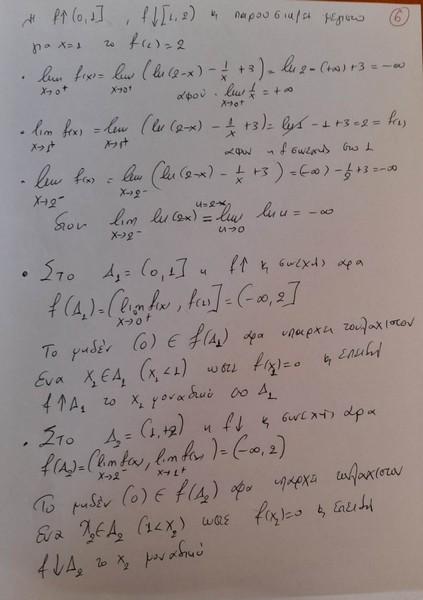 Η f↑(0,1] , f↓[1,2) κ παρουσιάζει μέγιστο ⑥
για x=1 το f(1)=2
• lim x→0⁺ f(x) = lim x→0⁺ (ln(2-x) - 1/x + 3) = ln2 - (+∞) + 3 = -∞
αφού lim x→0⁺ 1/x = +∞
• lim x→1⁺ f(x) = lim x→1⁺ (ln(2-x) - 1/x + 3) = ln1 - 1 + 3 = 2 = f(1)
αφου η f συνεχής στο 1
• lim x→2⁻ f(x) = lim x→2⁻ (ln(2-x) - 1/x + 3) = (-∞) - 1/2 + 3 = -∞
διοτι lim x→2⁻ ln(2-x) u=2-x = lim u→0 ln u = -∞
• Στο Δ₁ = (0,1] η f↑ κ συνεχής αρα
f(Δ₁) = (lim x→0⁺ f(x), f(1)] = (-∞, 2]
Το μηδέν (0) ∈ f(Δ₁) αρα υπαρχει τουλάχιστον
ενα x₁∈Δ₁ (x₁<1) ωστε f(x₁)=0 κ επειδή
f↑Δ₁ το x₁ μοναδικό στο Δ₁
• Στο Δ₂ = (1,+2) η f↓ κ συνεχής άρα
f(Δ₂) = (lim x→2⁻ f(x), lim x→1⁺ f(x)) = (-∞, 2)
Το μηδέν (0) ∈ f(Δ₂) αρα υπάρχει τουλάχιστον
ενα x₂∈Δ₂ (1<x₂) ωστε f(x₂)=0 κ επειδή
f↓Δ₂ το x₂ μοναδικό